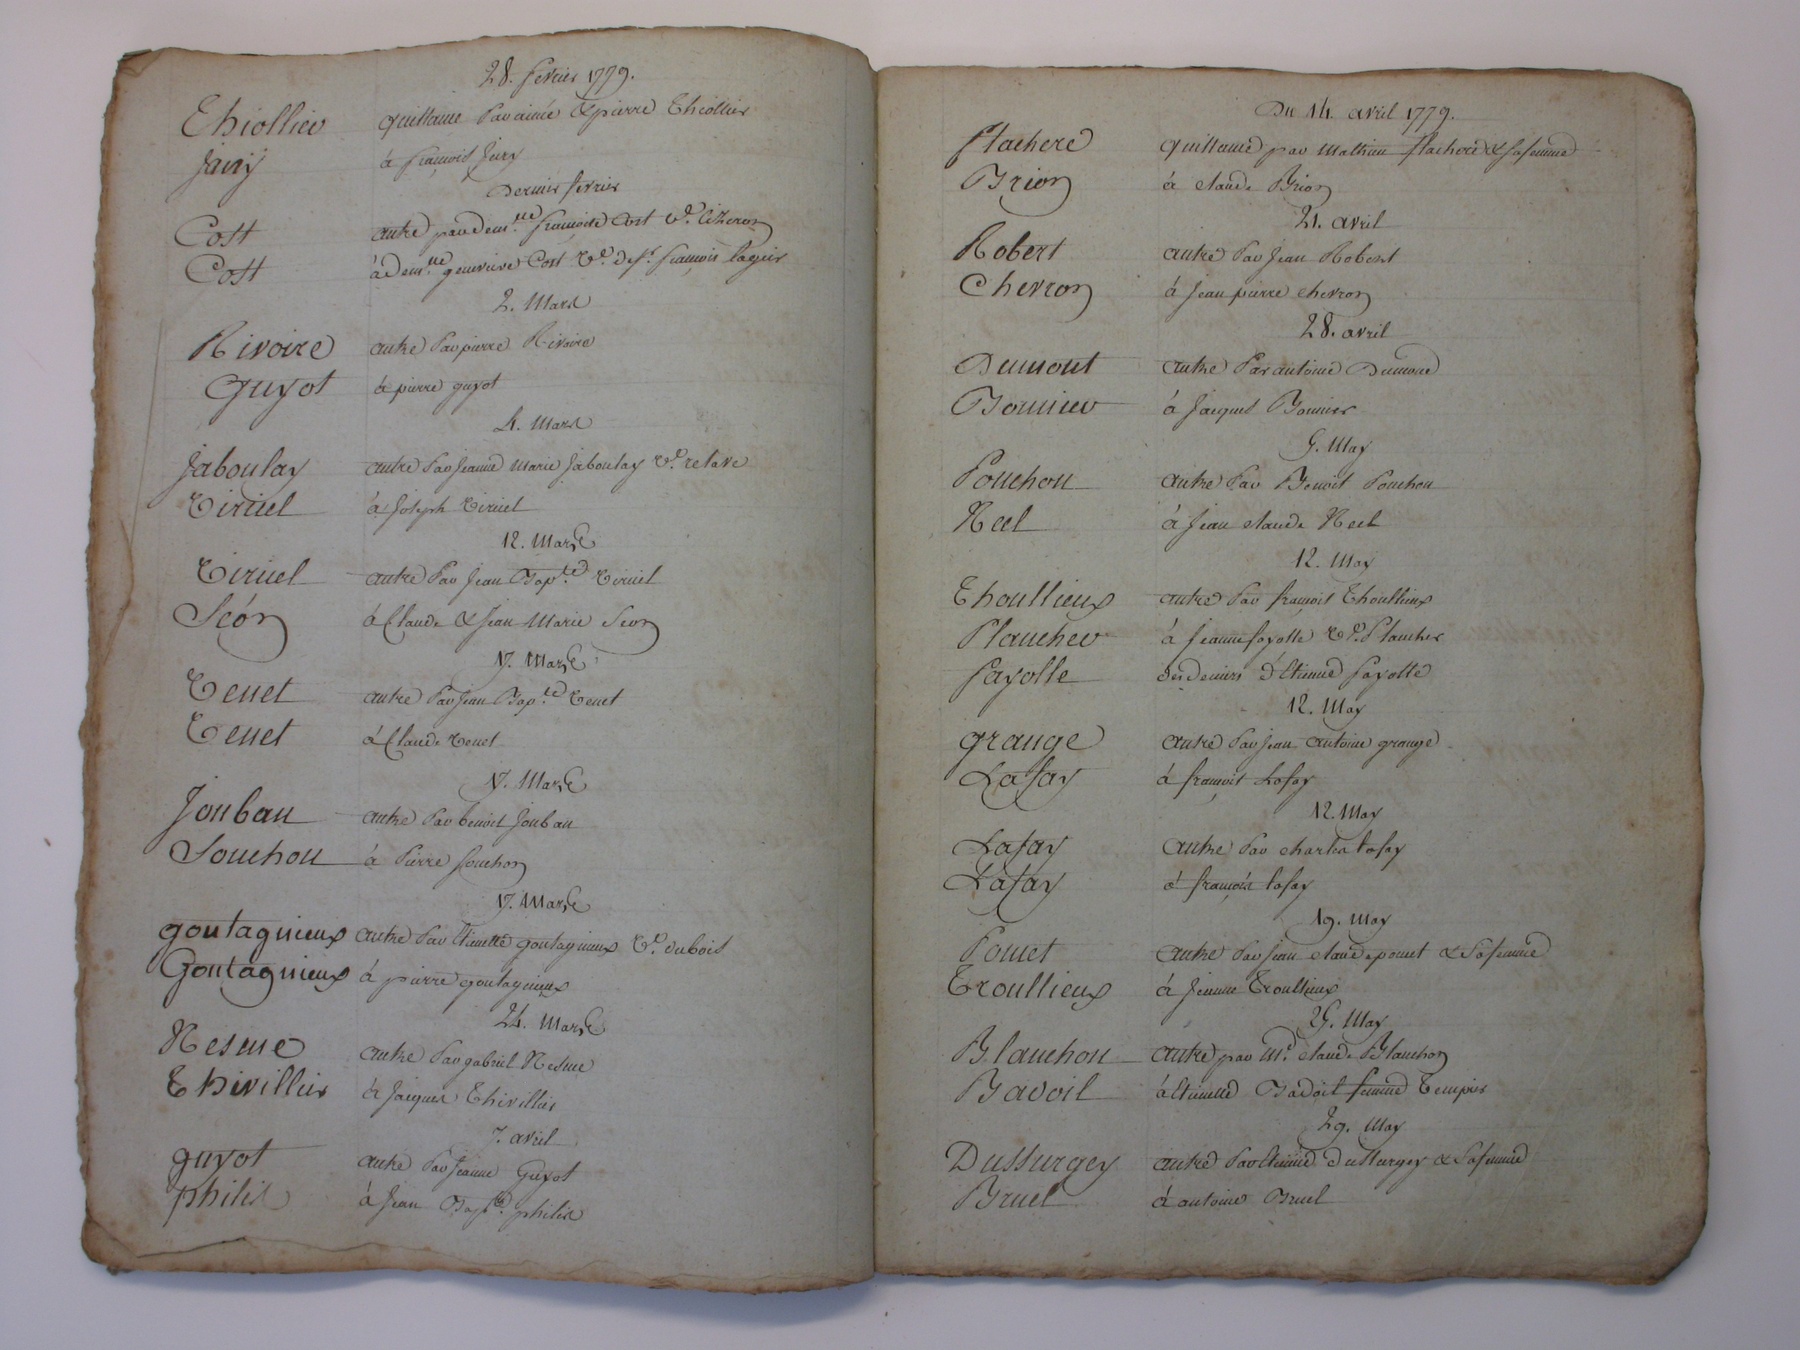 28. fevrier 1779.
Thiollier quittance par aimée & pierre Thiollier
Jury à francois Jury
Dernier fevrier
Cost autre par dem.lle francoise Cost v.e Cizeron
Cost à dem.lle genevieve Cost v.e de s.r francois
2. Mars
Rivoire autre par pierre Rivoire
Guyot à pierre guyot
4. Mars
Jaboulay autre par Jeanne Marie Jaboulay v.e relave
Tiruel à Joseph Tiruel
12. Mars
Tiruel autre par Jean Bap.te Tiruel
Séon à Claude & Jean Marie Seon
17. Mars
Tenet autre par Jean Bap.te Tenet
Tenet à Claude Tenet
17. Mars
Jouban autre par benoit Jouban
Souchon à Pierre Souchon
17. Mars
goutagnieux autre par Etiennette goutagnieux v.e dubois
Goutagnieux à pierre goutagnieux
24. Mars
Nesme autre par gabriel Nesme
Thivillier à Jacques Thivillier
7. avril
guyot autre par Jeanne Guyot
philis à Jean Bap.te philis
Du 14. avril 1779.
flachere quittance par Mathieu flachere & sa femme
Brion à claude Brion
21. avril
Robert autre par Jean Robert
Chevron à Jean pierre chevron
28. avril
Dumont autre Par antoine Dumont
Bonnier à Jacques Bonnier
5. May
Pouchon autre Par Benoit Pouchon
Neel à Jean claude Neel
12. May
Thoullieux autre par francois Thoullieux
Plancher à Jeanne fayolle v.e Plancher
fayolle des deniers d'Etienne fayolle
12. May
grange autre par Jean antoine grange
Lafay à francois Lafay
12. May
Lafay autre par charles lafay
Lafay à francois lafay
19. May
Ponet autre par Jean claude ponet & sa femme
Troullieux à Jeanne Troullieux
25. May
Blanchon autre par M.e claude Blanchon
Badoil à Etiennette Badoil femme Tempier
29. May
Dussurgey autre par Etienne dussurgey & sa femme
Bruel à antoine Bruel